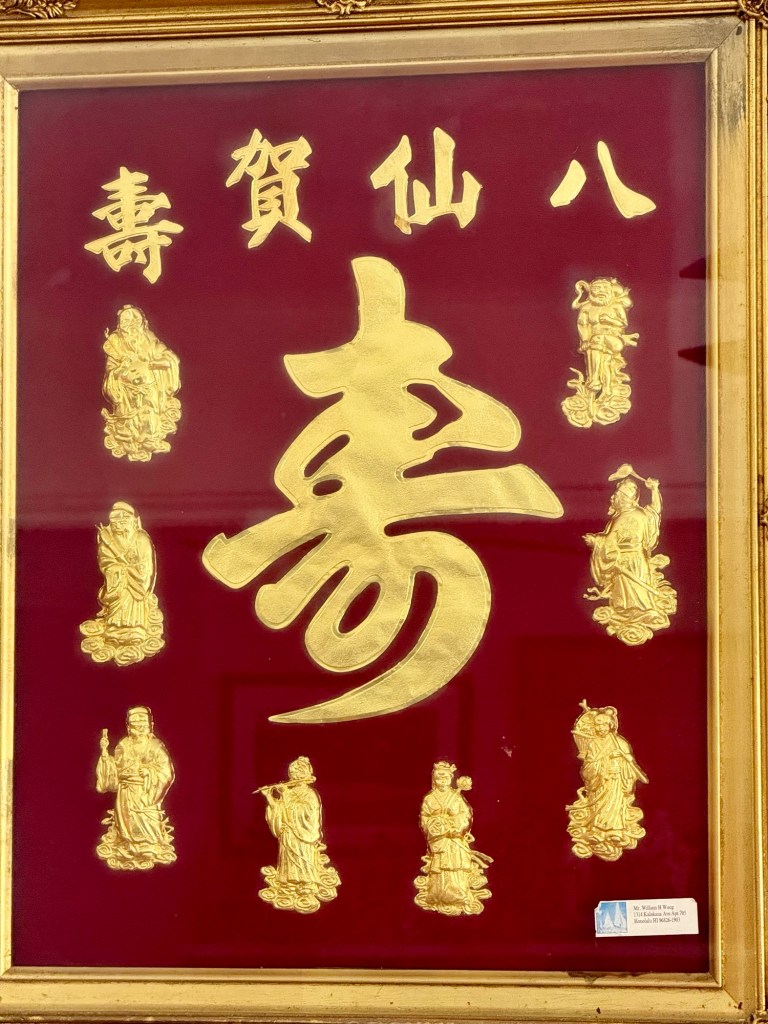 八仙賀壽
壽
Mr. William H Wong
1314 Kalakaua Ave Apt 705
Honolulu HI 96826-1903